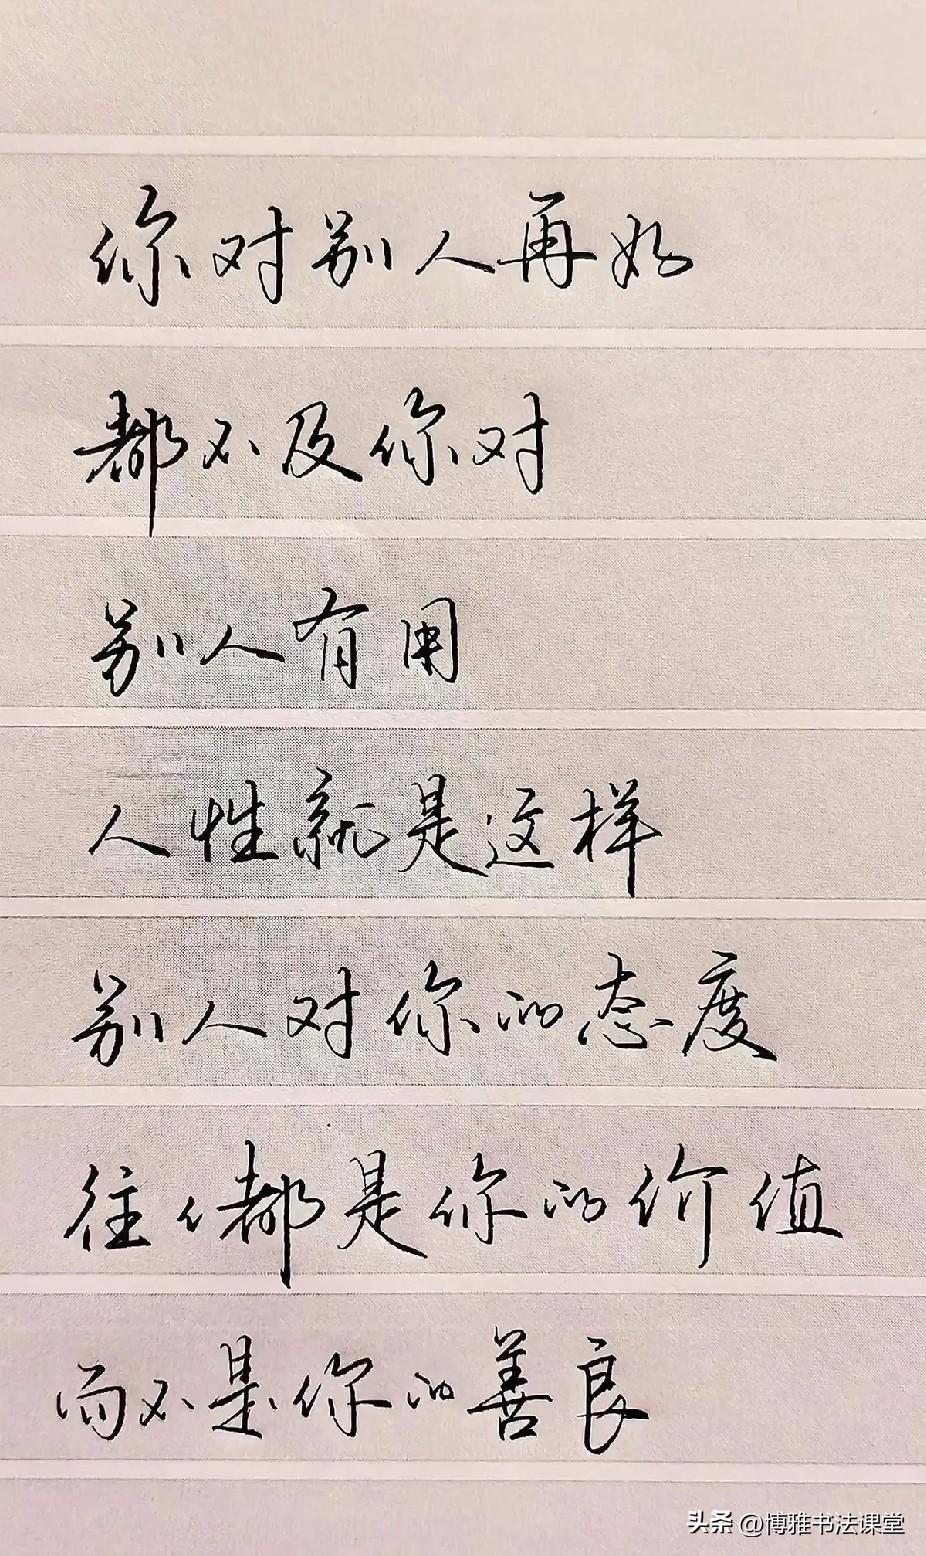 你对别人再好
都不及你对
别人有用
人性就是这样
别人对你的态度
往往都是你的价值
而不是你的善良
头条 @博雅书法课堂